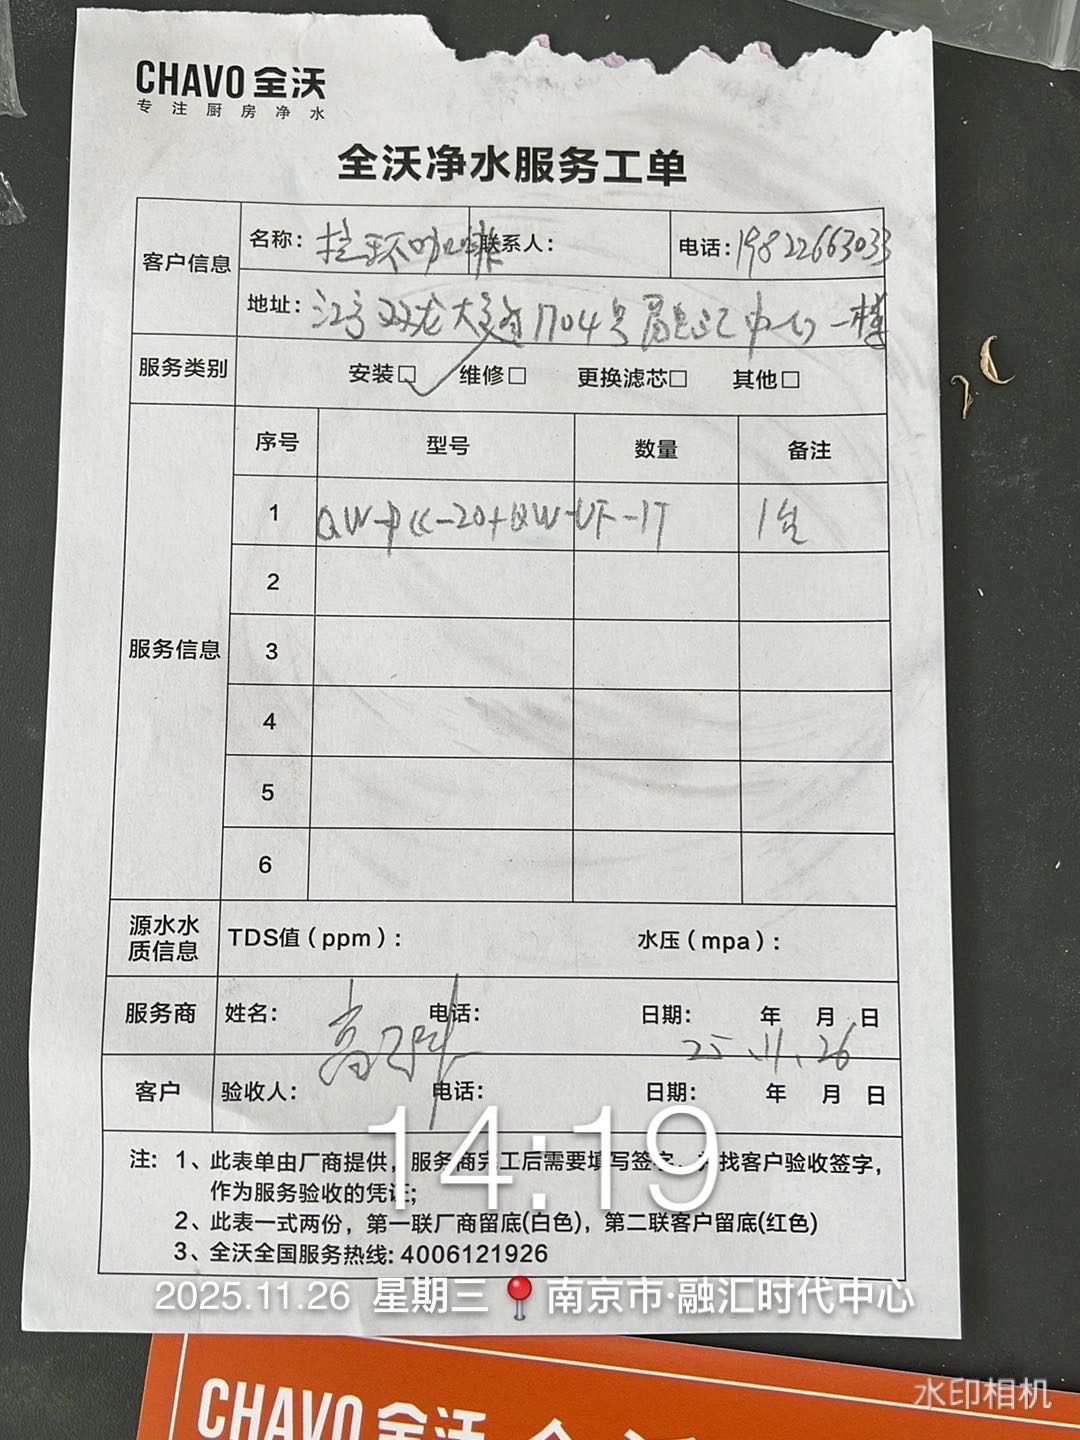 CHAVO 全沃
专注厨房净水
全沃净水服务工单
客户信息
名称：拉环咖啡 联系人： 电话：19822663033
地址：江宁双龙大道1704号 汇中心一楼
服务类别 安装□ 维修□ 更换滤芯□ 其他□
服务信息
序号 型号 数量 备注
1 QW-PCC-20+QW-UF-1T 1台
2
3
4
5
6
源水水质信息 TDS值（ppm）： 水压（mpa）：
服务商 姓名： 电话： 日期： 年 月 日
25.11.26
客户 验收人： 电话： 日期： 年 月 日
14:19
注：1、此表单由厂商提供，服务商完工后需要填写签字，找客户验收签字，
作为服务验收的凭证；
2、此表一式两份，第一联厂商留底(白色)，第二联客户留底(红色)
3、全沃全国服务热线：4006121926
2025.11.26 星期三 南京市·融汇时代中心
水印相机
CHAVO 全沃